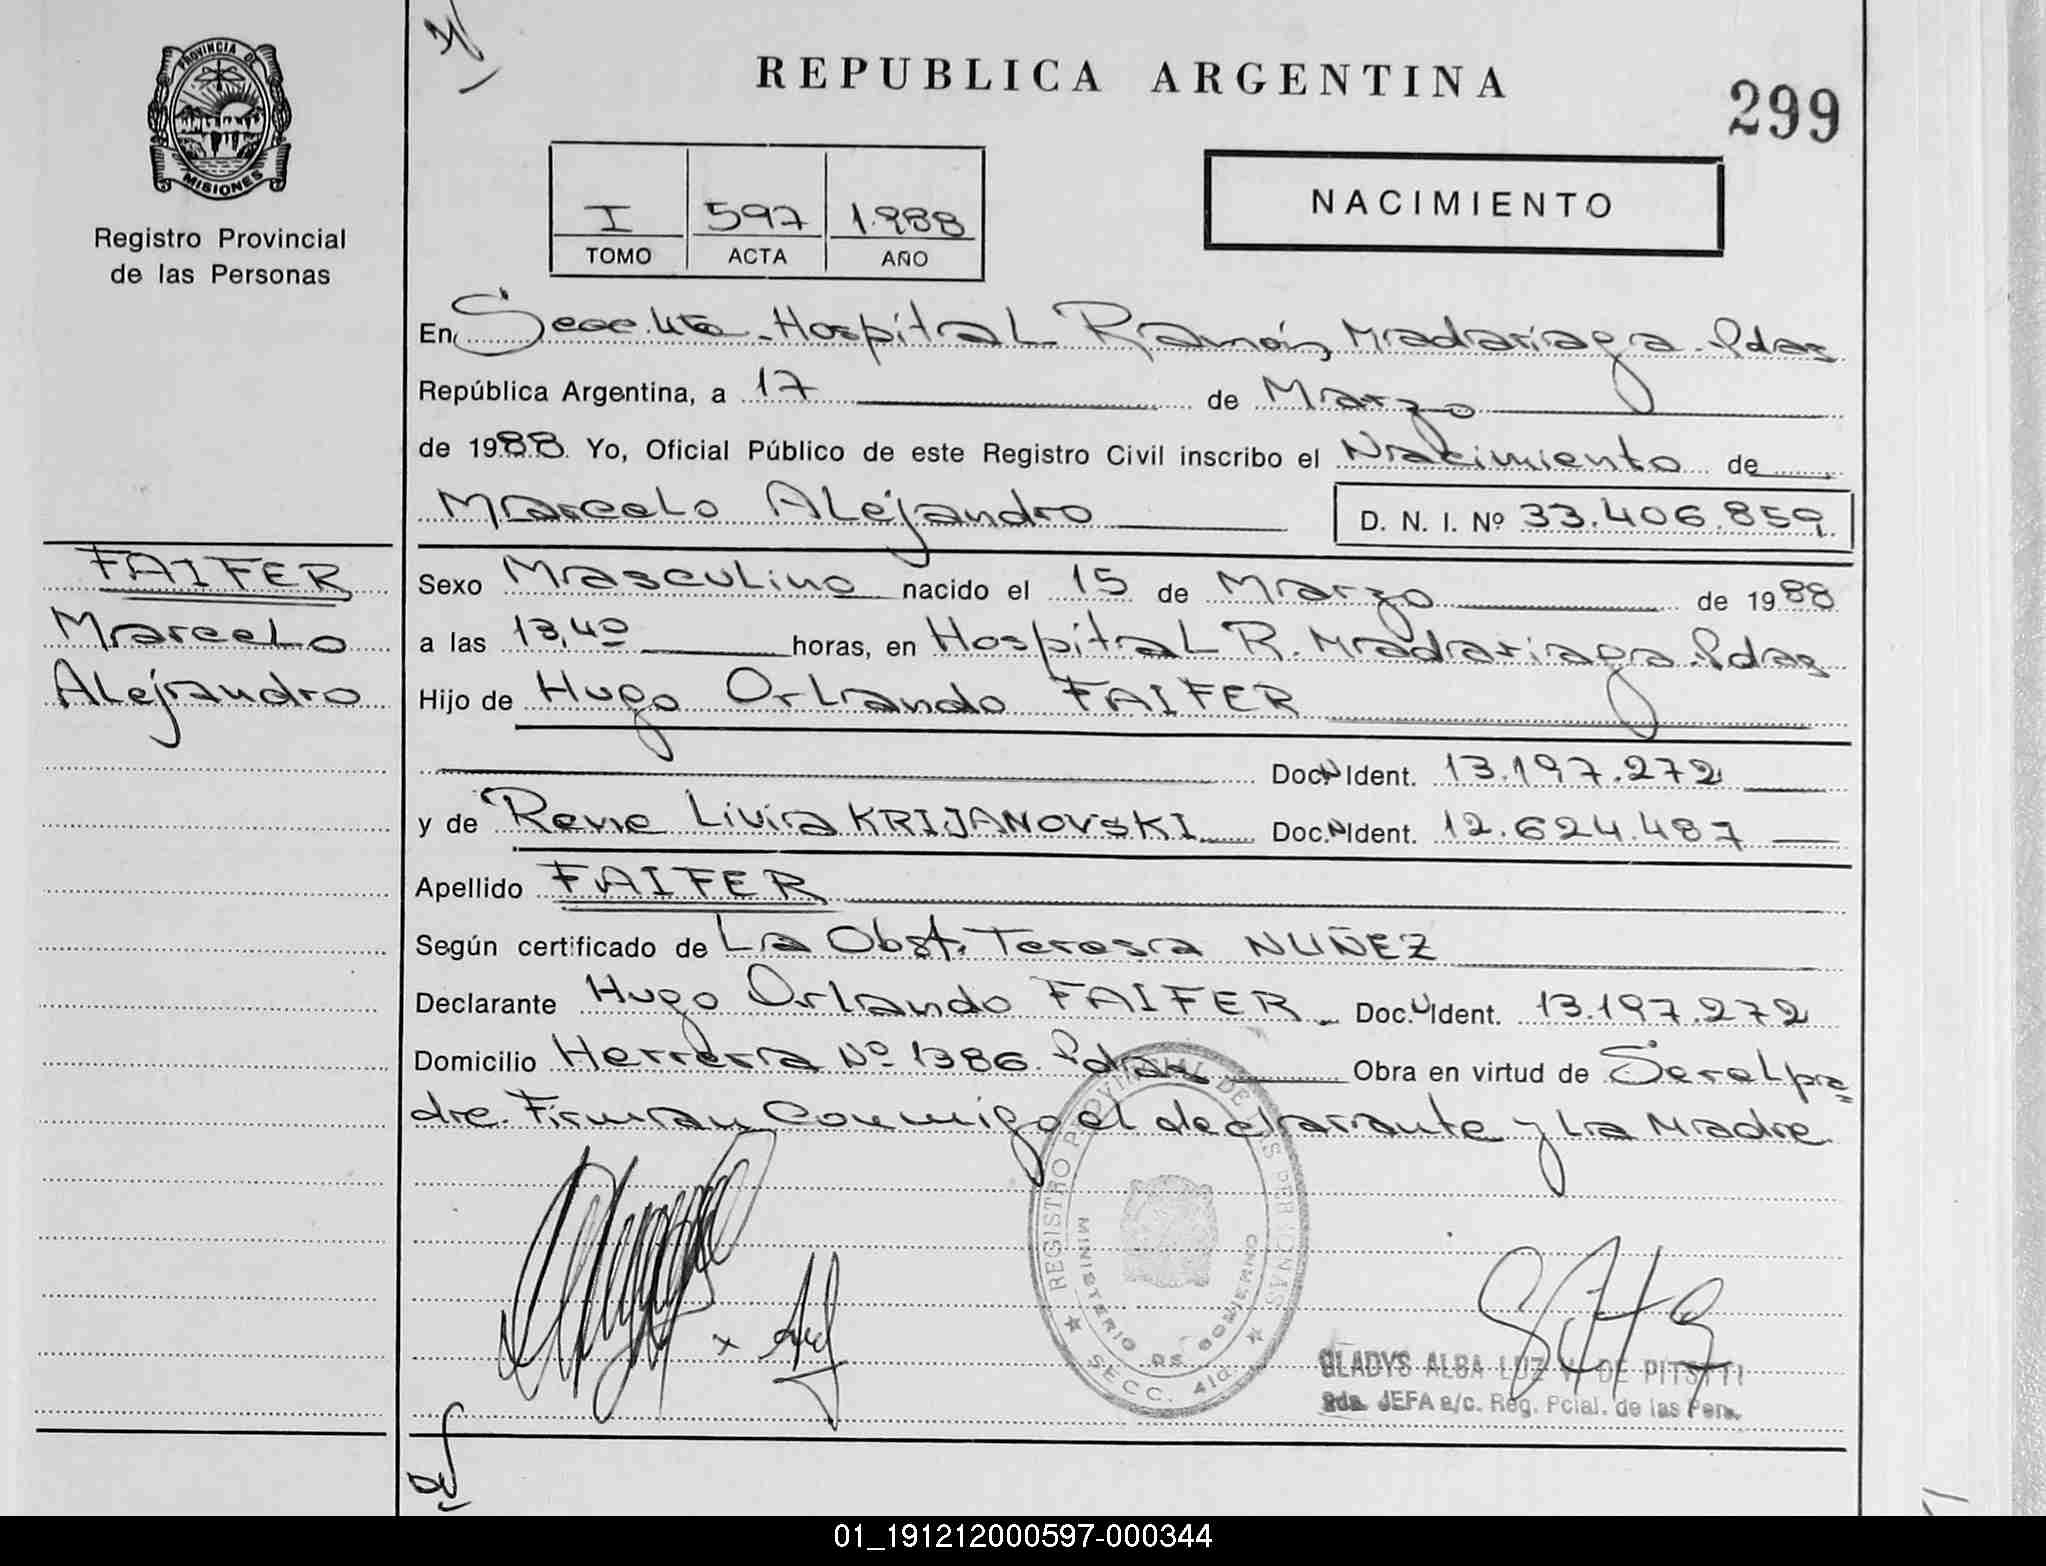 PROVINCIA DE
MISIONES
Registro Provincial
de las Personas
REPUBLICA ARGENTINA
299
I 597 1.988
TOMO ACTA AÑO
NACIMIENTO
En Secc. 4ta - Hospital Ramón Madariaga. Pdas
República Argentina, a 17 de Marzo
de 1988. Yo, Oficial Público de este Registro Civil inscribo el Nacimiento de
Marcelo Alejandro D. N. I. Nº 33.406.859
FAIFER
Marcelo
Alejandro
Sexo Masculino nacido el 15 de Marzo de 1988
a las 13,40 horas, en Hospital R. Madariaga. Pdas
Hijo de Hugo Orlando FAIFER
Doc. Ident. 13.197.272
y de Rene Livia KRIJANOVSKI Doc. Ident. 12.624.487
Apellido FAIFER
Según certificado de La Obst. Teresa NUÑEZ
Declarante Hugo Orlando FAIFER Doc. Ident. 13.197.272
Domicilio Herrera Nº 1386. Pdas Obra en virtud de Ser el pa=
dre. Firman Conmigo el declarante y La Madre
REGISTRO PROVINCIAL DE LAS PERSONAS
MINISTERIO DE GOBIERNO
SECC. 4ta
GLADYS ALBA LUZ V. DE
2da. JEFA a/c. Reg. Pcial. de las Pers.
01_191212000597-000344